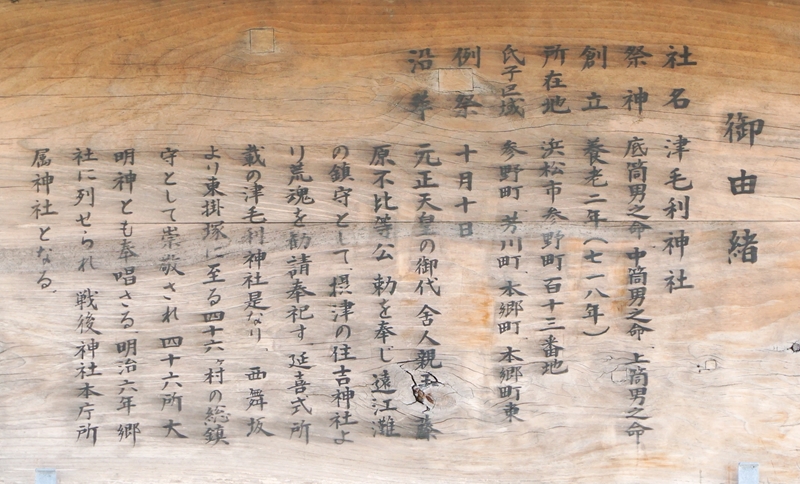 御由緒
社名 津毛利神社
祭神 底筒男之命 中筒男之命 上筒男之命
創立 養老二年(七一八年)
所在地 浜松市参野町百十三番地
氏子区域 参野町 芳川町 本郷町 本郷町東
例祭 十月十日
沿革 元正天皇の御代 舎人親王、藤
原不比等公 勅を奉じ 遠江灘
の鎮守として摂津の住吉神社よ
り荒魂を勧請奉祀す 延喜式所
載の津毛利神社是なり 西舞坂
より東掛塚に至る四十六ヶ村の総鎮
守として崇敬され 四十六所大
明神とも奉唱さる 明治六年郷
社に列せられ 戦後神社本庁所
属神社となる